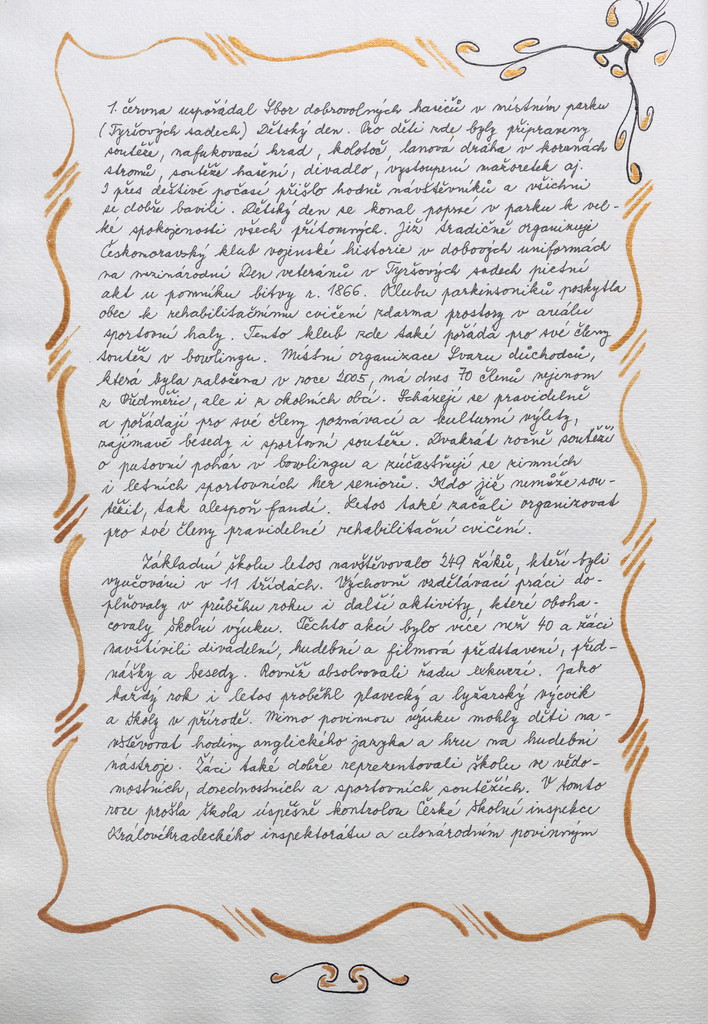 1. června uspořádal Sbor dobrovolných hasičů v místním parku
(Tyršových sadech) Dětský den. Pro děti zde byly připraveny
soutěže, nafukovací hrad, kolotoč, lanová dráha v korunách
stromů, soutěže hašení, divadlo, vystoupení mažoretek aj.
I přes deštivé počasí přišlo hodně návštěvníků a všichni
se dobře bavili. Dětský den se konal poprvé v parku k vel-
ké spokojenosti všech přítomných. Již tradičně organizuje
Českomoravský klub vojenské historie v dobových uniformách
na mezinárodní Den veteránů v Tyršových sadech pietní
akt u pomníku bitvy r. 1866. Klubu parkinsoniků poskytla
obec k rehabilitačnímu cvičení zdarma prostory v areálu
sportovní haly. Tento klub zde také pořádá pro své členy
soutěž v bowlingu. Místní organizace Svazu důchodců,
která byla založena v roce 2005, má dnes 70 členů nejenom
z Předměřic, ale i z okolních obcí. Scházejí se pravidelně
a pořádají pro své členy poznávací a kulturní výlety,
zajímavé besedy i sportovní soutěže. Dvakrát ročně soutěží
o putovní pohár v bowlingu a zúčastňují se zimních
i letních sportovních her seniorů. Kdo již nemůže sou-
těžit, tak alespoň fandí. Letos také začali organizovat
pro své členy pravidelné rehabilitační cvičení.
Základní školu letos navštěvovalo 249 žáků, kteří byli
vyučováni v 11 třídách. Výchovně vzdělávací práci do-
plňovaly v průběhu roku i další aktivity, které oboha-
covaly školní výuku. Těchto akcí bylo více než 40 a žáci
navštívili divadelní, hudební a filmová představení, před-
nášky a besedy. Rovněž absolvovali řadu exkurzí. Jako
každý rok i letos proběhl plavecký a lyžařský výcvik
a školy v přírodě. Mimo povinnou výuku mohly děti na-
vštěvovat hodiny anglického jazyka a hru na hudební
nástroje. Žáci také dobře reprezentovali školu ve vědo-
mostních, dovednostních a sportovních soutěžích. V tomto
roce prošla škola úspěšně kontrolou České školní inspekce
Královéhradeckého inspektorátu a celonárodním povinným